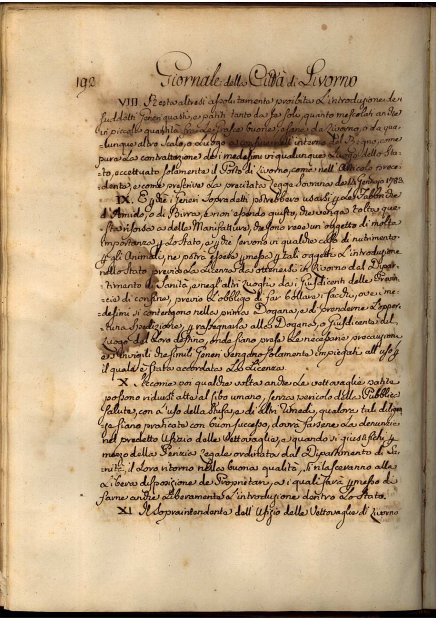 192 Giornale della Città di Livorno
VIII. Resta altresì assolutamente proibita l'introduzione de i
suddetti Generi guasti, e patiti tanto da se soli, quanto mescolati anche
in piccole quantità tra le buone, e sane da Livorno, o da qua
lunque altro Scalo, o Luogo interno del Regno, come
pure la contrattazione de i medesimi in qualunque Luogo dello Sta
to, eccettuato solamente il Porto di Livorno, come nell'Articolo prece
dente, e come prescrive la precitata Legge Sovrana de 1783.
IX. E se i Generi sopradetti potrebbero usarsi per le Fabbriche
d'Amido, o di Birra, e non essendo giusto, che venga tolta que
sta risorsa a delle Manifatture, che sono rese un'oggetto di molta
importanza per lo Stato, e che servono in qualche caso di nutrimento
per gli Animali, ne potrà essere permessa per tali oggetti l'introduzione
nello Stato previa la Licenza da ottenersi in Livorno dal Dipar
timento di Sanità, e negl'altri Luoghi da i Giusdicenti delle Provin
cie di confine, previo l'obbligo di far bollare i sacchi, ove i me
desimi si contengono nella prima Dogana, e di prenderne l'oppor
tuna spedizione, per rassegnarla alla Dogana, o Giusdicente del
Luogo del loro destino, onde siano prese le necessarie precauzioni
e invigili che simili Generi vengano solamente impiegati all'uso per
il quale è stata accordata la Licenza.
X. Siccome poi qualche volta anche le vettovaglie patite
possono ridursi atte al cibo umano, senza pericolo della Pubblica
salute, con l'uso della Stufa, e di altri rimedj, qualora tali diligen
ze siano praticate con buon successo, dovrà farsene la denunzia
nel predetto Ufizio delle Vettovaglie, e quando si giustifichi per
mezzo della Perizia Legale ordinata dal Dipartimento di Sa
nità, il loro ritorno nella buona qualità, si rilasceranno alla
Libera disposizione de Proprietarj, a i quali sarà permesso di
farne anche liberamente l'introduzione dentro lo Stato.
XI. Il Sopraintendente dell'Ufizio delle Vettovaglie di Livorno